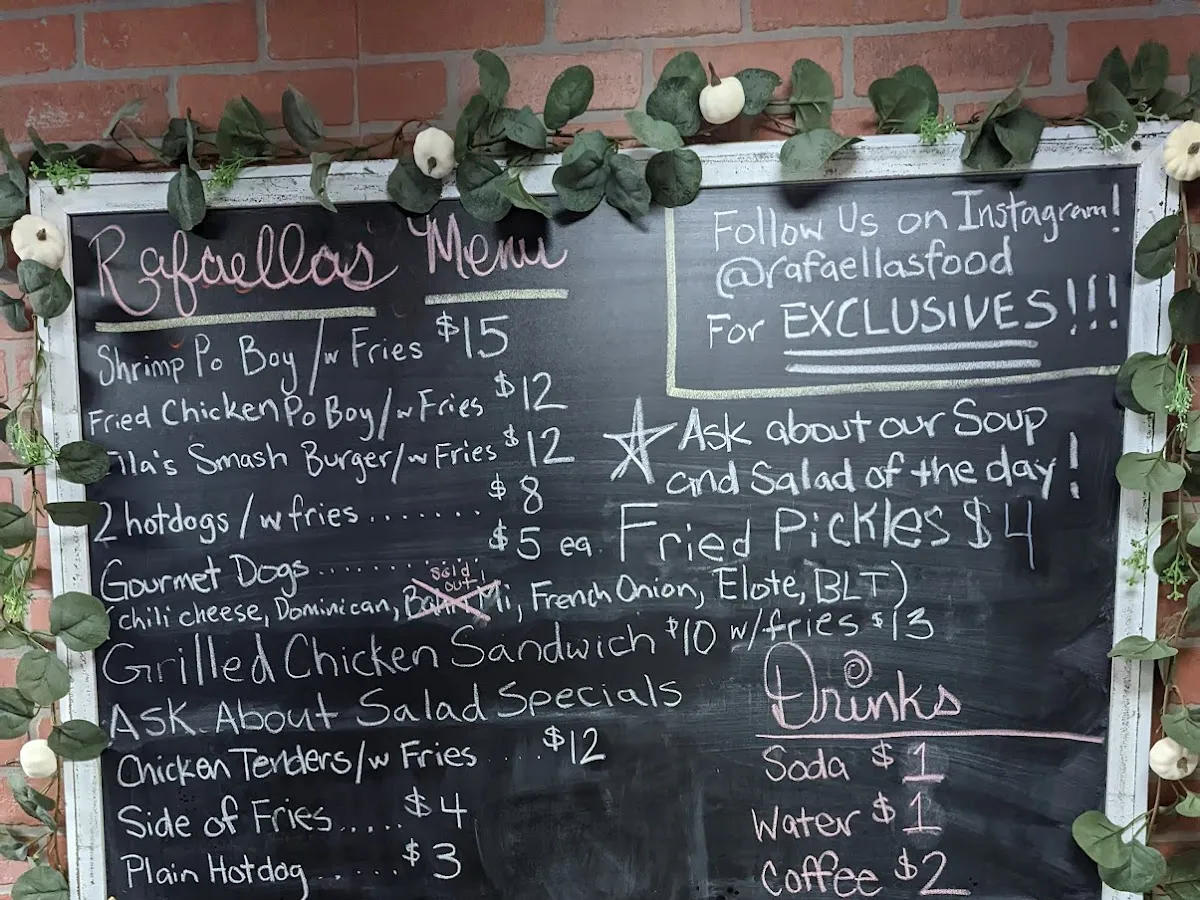 Rafaellas Menu
Shrimp Po Boy /w Fries $15
Fried Chicken Po Boy/w Fries $12
Ella's Smash Burger/w Fries $12
2 hotdogs /w fries ....... $8
Gourmet Dogs ....... $5 ea.
sold out!
(chili cheese, Dominican, Bahn Mi, French Onion, Elote, BLT)
Grilled Chicken Sandwich $10 w/fries $13
Ask About Salad Specials
Chicken Tenders/w Fries .... $12
Side of Fries..... $4
Plain Hotdog ...... $3
Follow Us on Instagram!
@rafaellasfood
For EXCLUSIVES!!!
Ask about our Soup
and Salad of the day!
Fried Pickles $4
Drinks
Soda $1
Water $1
Coffee $2